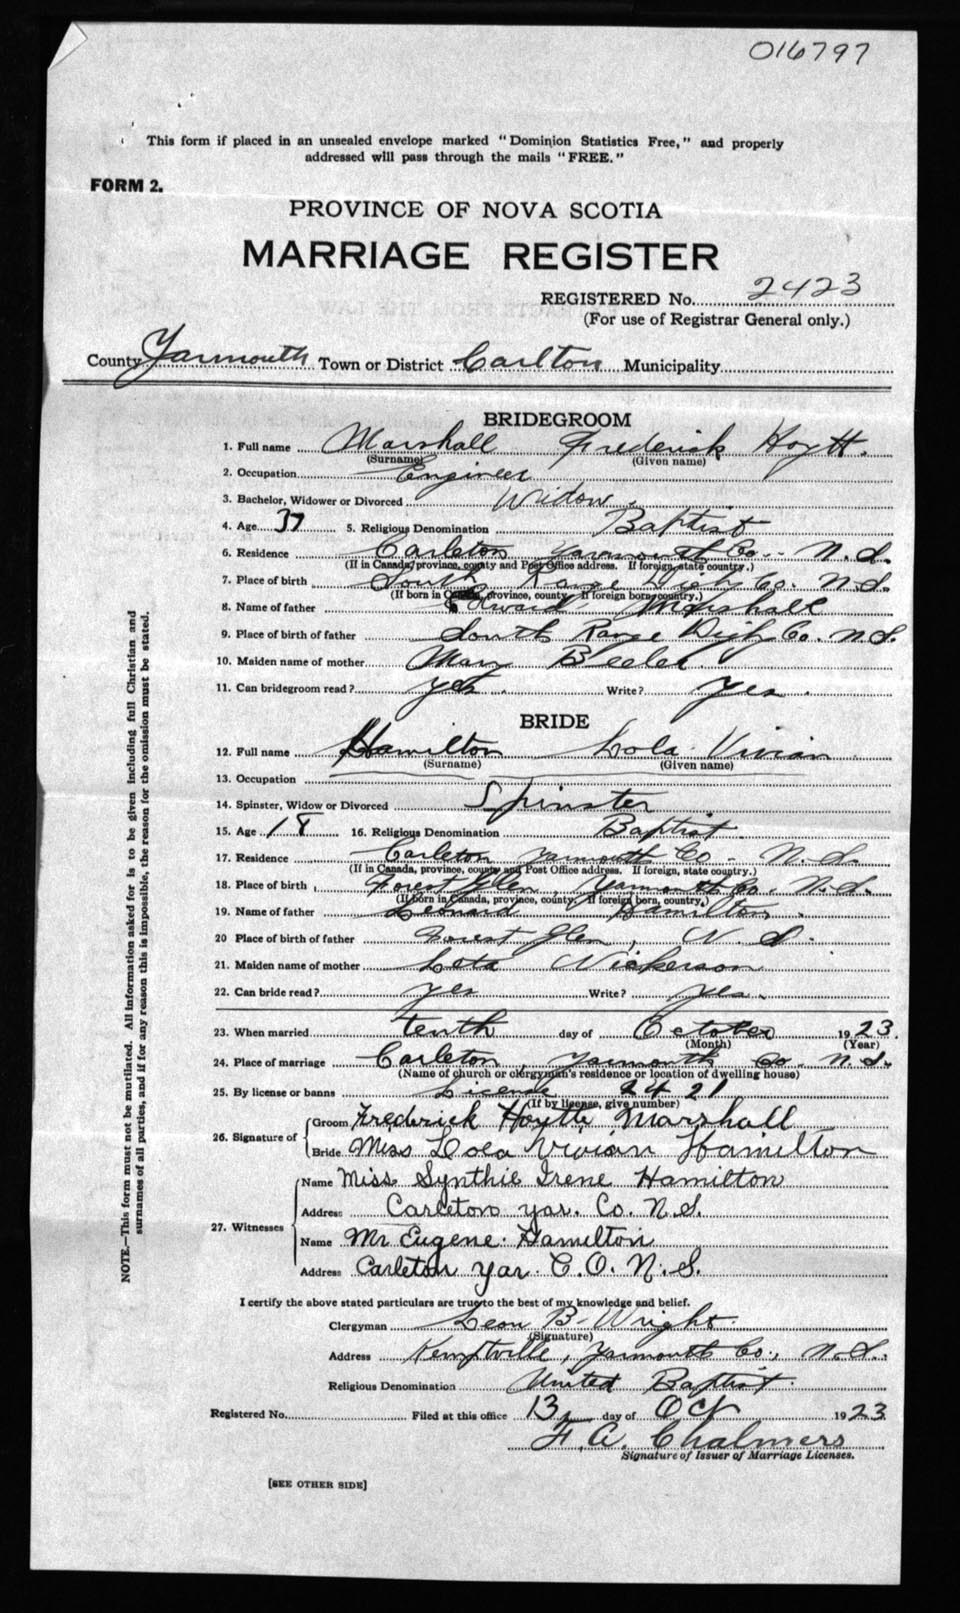 016797
This form if placed in an unsealed envelope marked "Dominion Statistics Free," and properly
addressed will pass through the mails "FREE."
FORM 2.
PROVINCE OF NOVA SCOTIA
MARRIAGE REGISTER
REGISTERED No. 2423
(For use of Registrar General only.)
County Yarmouth Town or District Carlton Municipality
BRIDEGROOM
1. Full name Marshall Frederick Hoytt.
(Surname) (Given name)
2. Occupation Engineer
3. Bachelor, Widower or Divorced Widow
4. Age 37 5. Religious Denomination Baptist
6. Residence Carleton Yarmouth Co. N.S.
(If in Canada, province, county and Post Office address. If foreign, state country.)
7. Place of birth South Range Digby Co. N.S.
(If born in Canada, province, county. If foreign born, country.)
8. Name of father Edward Marshall
9. Place of birth of father South Range Digby Co. N.S.
10. Maiden name of mother Mary Beeler
11. Can bridegroom read? yes. Write? Yes.
BRIDE
12. Full name Hamilton Lola Vivian
(Surname) (Given name)
13. Occupation
14. Spinster, Widow or Divorced Spinster
15. Age 18 16. Religious Denomination Baptist
17. Residence Carleton Yarmouth Co. N.S.
(If in Canada, province, county and Post Office address. If foreign, state country.)
18. Place of birth Forest Glen, Yarmouth Co. N.S.
(If born in Canada, province, county. If foreign born, country.)
19. Name of father Leonard Hamilton.
20 Place of birth of father Forest Glen, N.S.
21. Maiden name of mother Leta Nickerson
22. Can bride read? yes Write? yes.
23. When married tenth day of October 1923.
(Month) (Year)
24. Place of marriage Carleton, Yarmouth Co. N.S.
(Name of church or clergyman's residence or location of dwelling house)
25. By license or banns License 2421
(If by license, give number)
26. Signature of
Groom Frederick Hoytte Marshall
Bride Miss Lola Vivian Hamilton
27. Witnesses
Name Miss Synthie Irene Hamilton
Address Carleton yar. Co. N.S.
Name Mr Eugene Hamilton
Address Carleton yar. C.O. N.S.
I certify the above stated particulars are true to the best of my knowledge and belief.
Clergyman Leon B. Wright.
(Signature)
Address Kemptville, Yarmouth Co., N.S.
Religious Denomination United Baptist.
Registered No. Filed at this office 13 day of Oct 1923
F. A. Chalmers
Signature of Issuer of Marriage Licenses.
[SEE OTHER SIDE]
NOTE.—This form must not be mutilated. All information asked for is to be given including full Christian and
surnames of all parties, and if for any reason this is impossible, the reason for the omission must be stated.